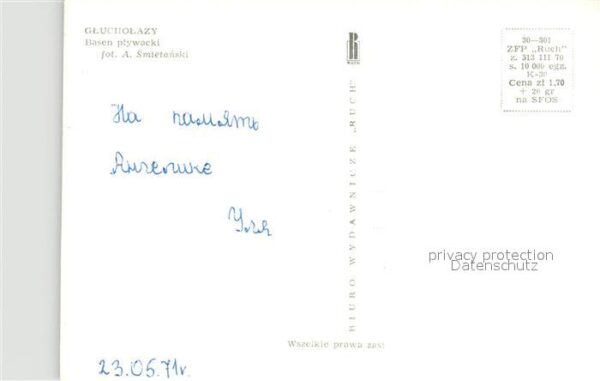 GŁUCHOŁAZY
Basen pływacki
fot. A. Śmietański
30—301
ZFP „Ruch”
z. 313 111 70
s. 10 000 egz.
K-30
Cena zł 1,70
+ 20 gr
na SFOS
На память
Анжелике
Уля
BIURO WYDAWNICZE „RUCH”
privacy protection
Datenschutz
Wszelkie prawa zast
23.05.71r.